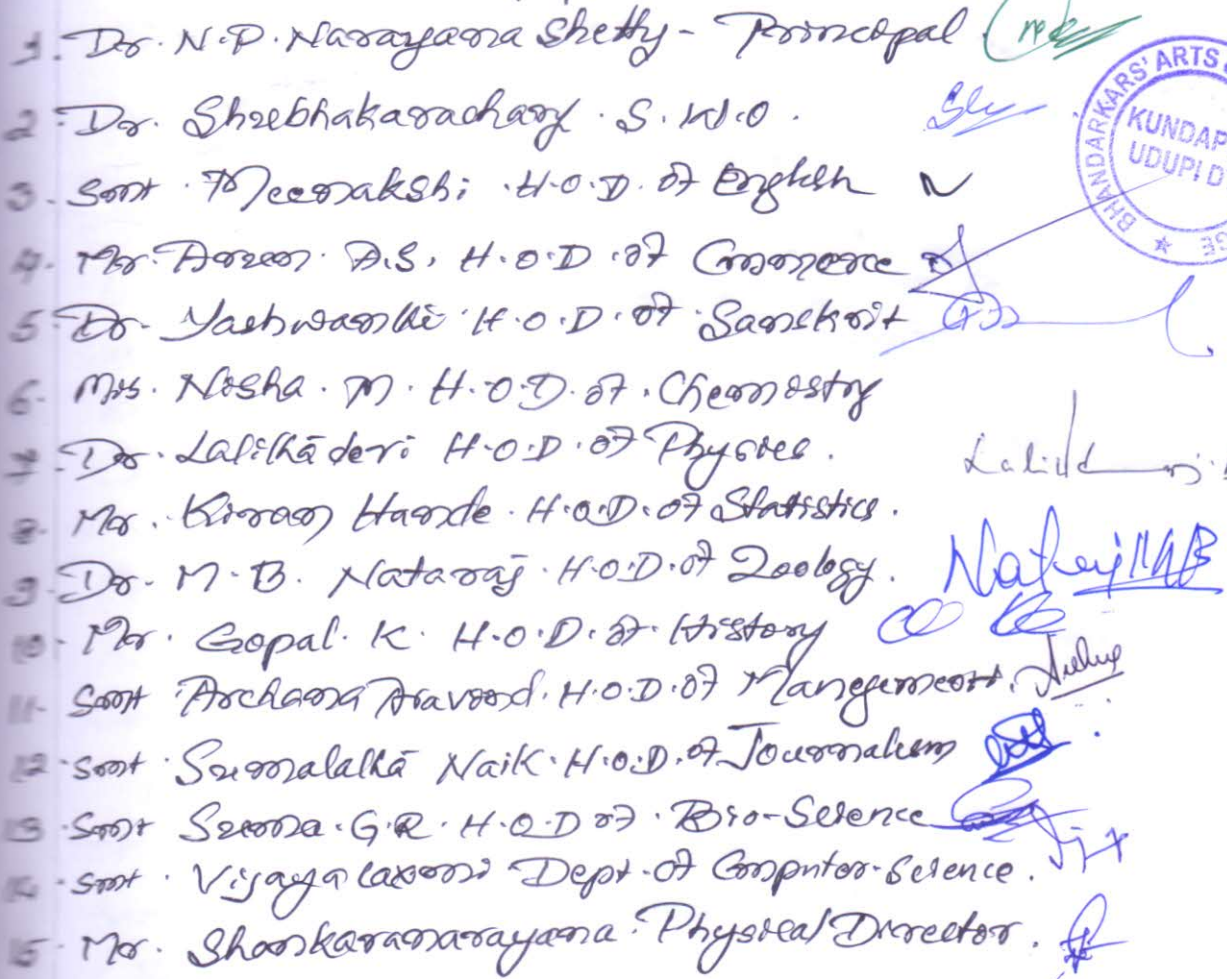 1. Dr. N.P. Narayana Shetty - Principal
BHANDARKARS' ARTS
KUNDAP
UDUPI D
2. Dr. Shubhakarachary. S.W.O.
3. Smt. Meenakshi. H.O.D. of English
4. Mr. A.S. H.O.D. of Commerce
5. Dr. H.O.D. of Sanskrit
6. Mrs. Nisha. M. H.O.D. of Chemistry
7. Dr. Lalithādevi H.O.D. of Physics.
8. Mr. Kiran Hande. H.O.D. of Statistics.
9. Dr. M.B. Nataraj. H.O.D. of Zoology. Nataraj MB
10. Mr. Gopal. K. H.O.D. of History
11. Smt Archana Aravind. H.O.D. of Mangement.
12. Smt. Sumalathā Naik. H.O.D. of Journalism
13. Smt Suma. G.R. H.O.D of. Bio-Science
14. Smt. Vijayalaxmi Dept. of Computer-Science.
15. Mr. Shankaranarayana. Physical Director.